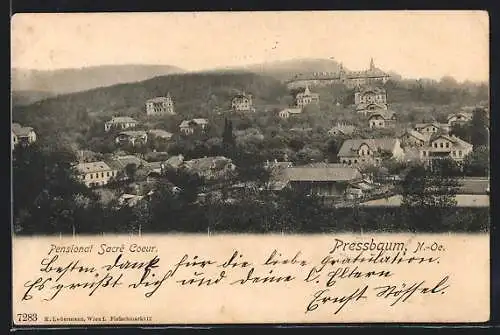 Pensionat Sacré Coeur.
Pressbaum, N.-Oe.
Besten Dank für die liebe Gratulation.
Es grüßt dich und deine l. Eltern
Ernst Stössel.
7283 K. Ledermann, Wien I. Fleischmarkt 12